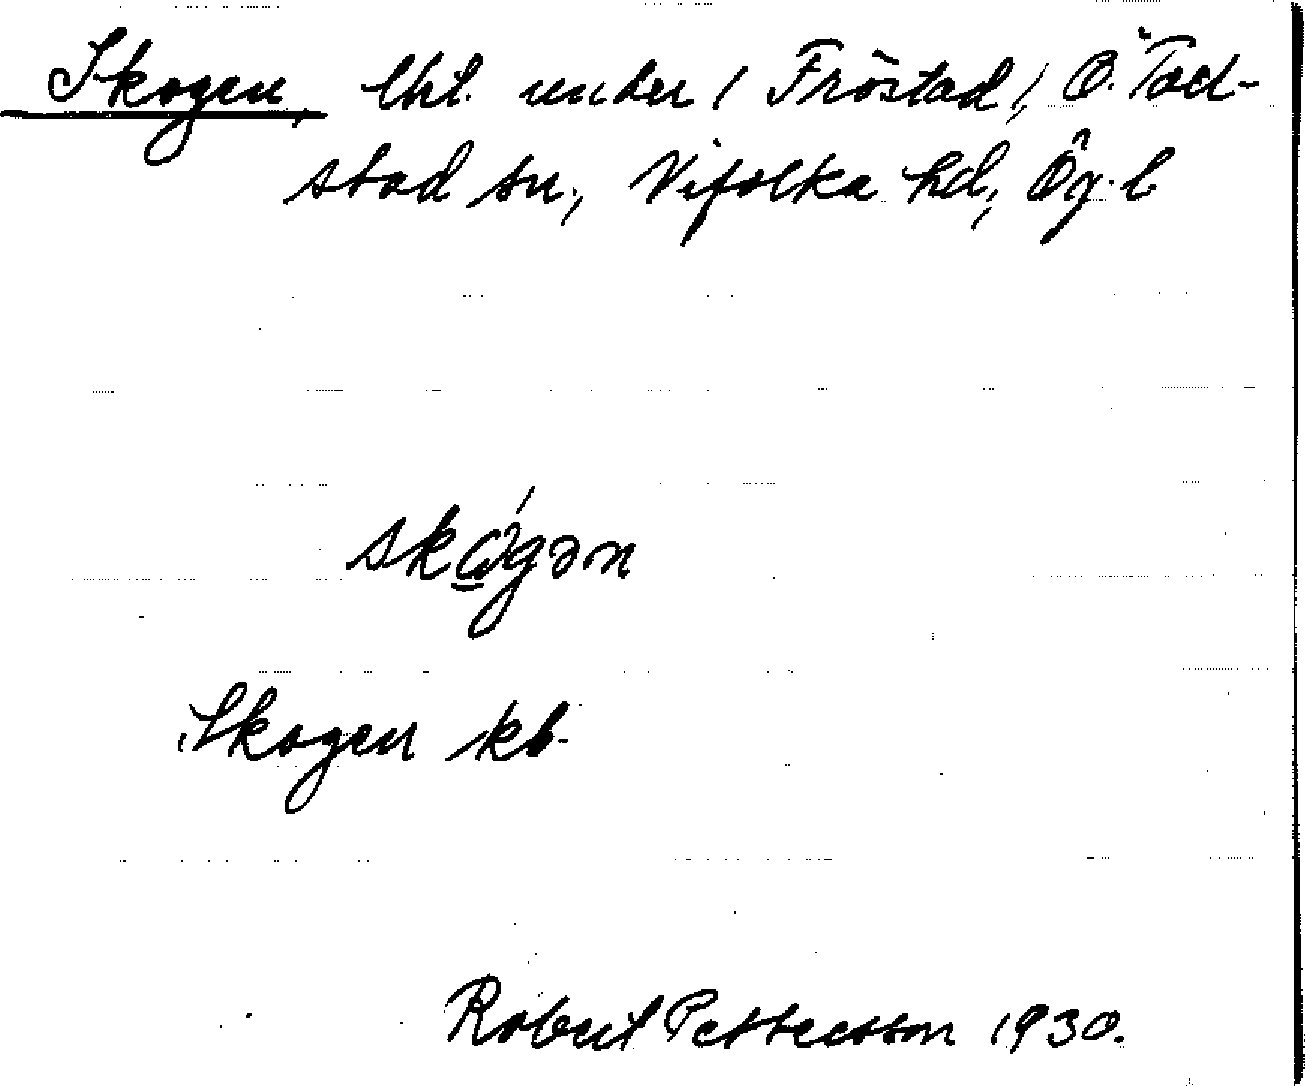 Skogen, lht. under 1 Fröstad, Ö. Tod-
stad sn, Vifolka hd, Ög. l
skógən
Skogen kb.
Robert Pettersson 1930.